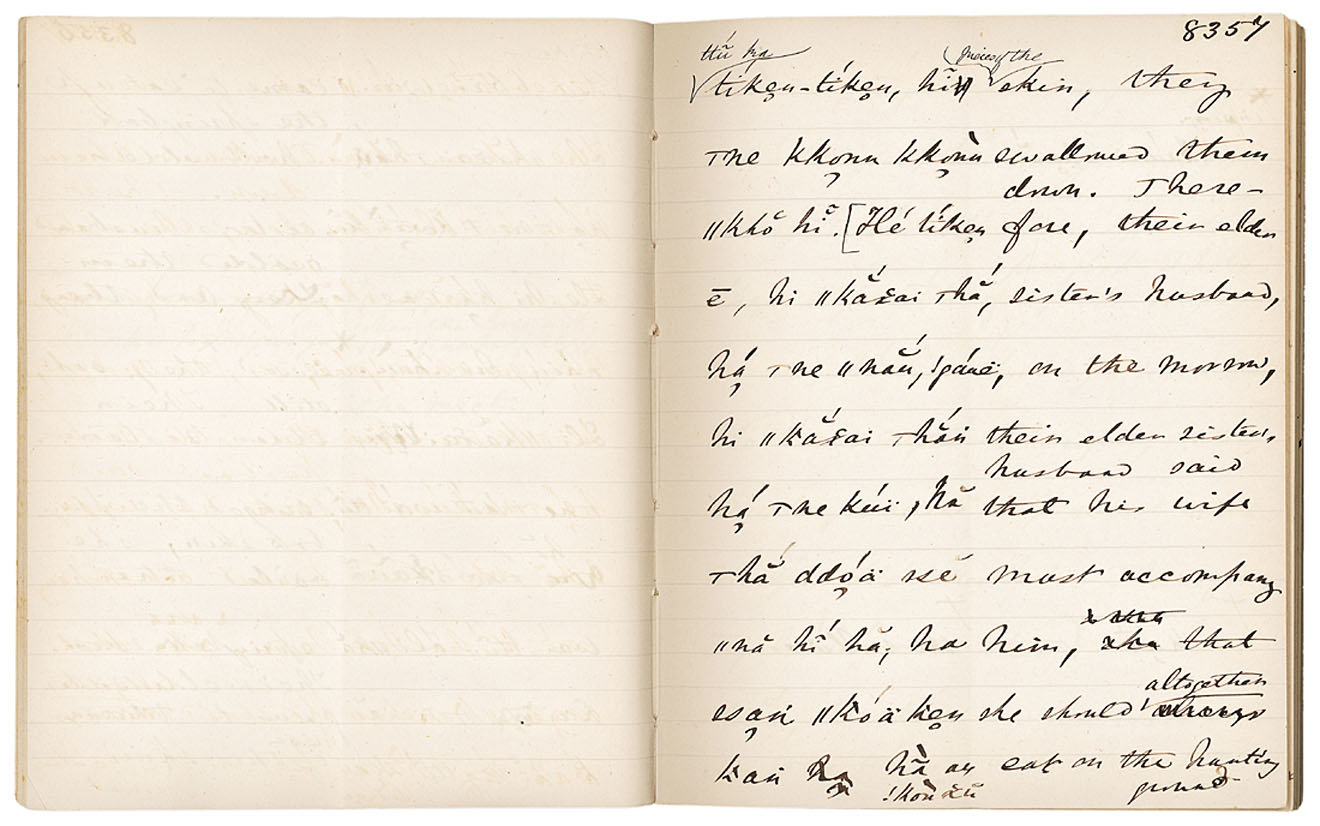 8357
ttŭ ka pieces of the
tíkẹn-tíkẹn, hĭ skin, they
⊤ne kkọnn kkọnn swallowed them
down. There-
ǁkhŏ hĭ. [Hé tíkẹn fore, their elder
ē, hi ǁkắxai ⊤hắ, sister's husband,
hạ́ ⊤ne ǁnău, !gáuë, on the morrow,
hi ǁkắxai ⊤hắn their elder sister's
husband said
hạ́ ⊤ne kúï, hă that his wife
⊤hắ ddọ́ä ssĕ must accompany
ǁnă hĭ hă, ha him, she that
altogether
ssạn ǁkóä kẹn she should always
kan hạ hă au eat on the hunting
!kŏŭxŭ ground